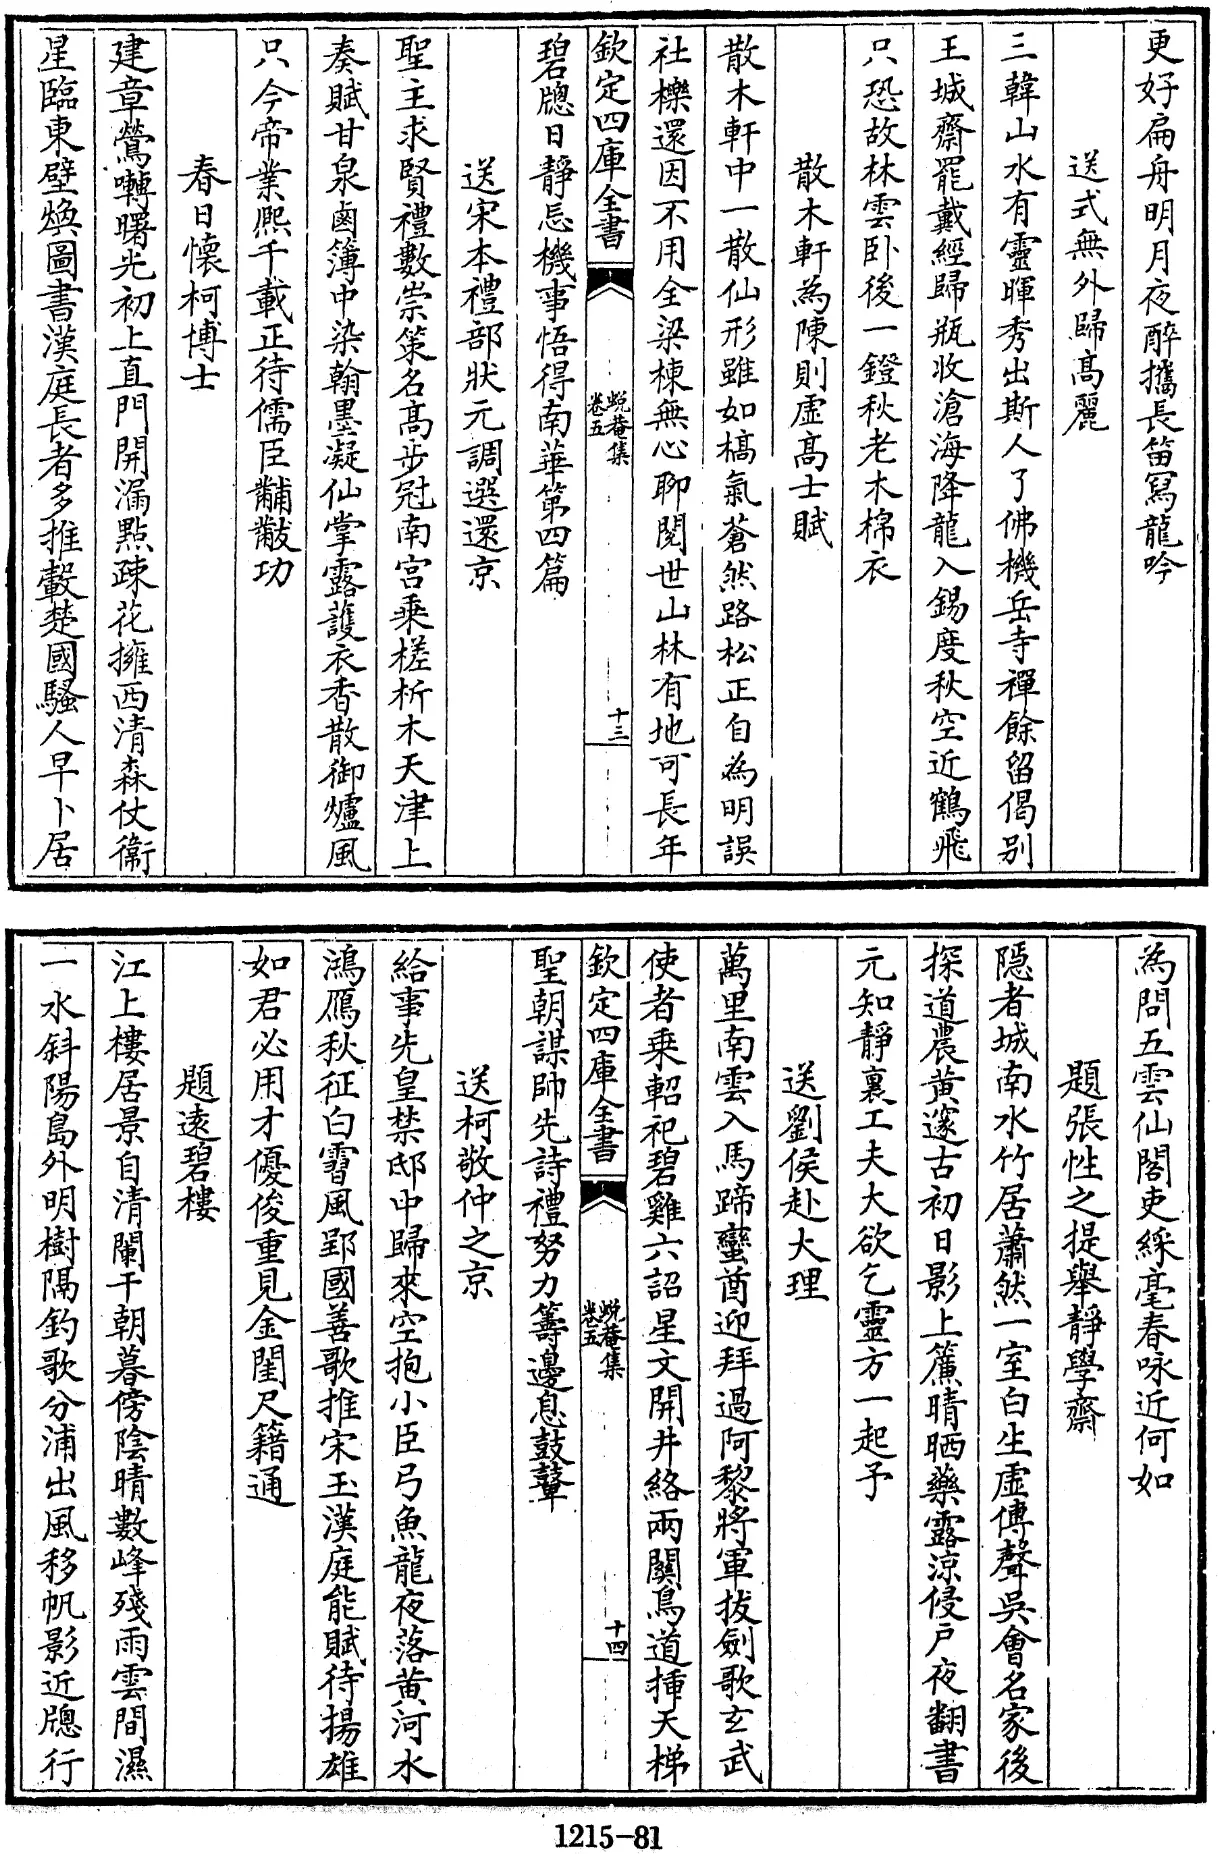 更好扁舟明月夜醉攜長笛寫龍吟
送式無外歸髙麗
三韓山水有靈暉秀出斯人了佛機岳寺禪餘留偈别
王城齋罷戴經歸瓶收滄海降龍入錫度秋空近鶴飛
只恐故林雲卧後一鐙秋老木棉衣
散木軒為陳則虛髙士賦
散木軒中一散仙形雖如槁氣蒼然路松正自為明誤
社櫟還因不用全梁棟無心聊閲世山林有地可長年
欽定四庫全書
蛻菴集
卷五
十三
碧牕日靜忘機事悟得南華第四篇
送宋本禮部狀元調選還京
聖主求賢禮數崇策名髙步冠南宫乘槎析木天津上
奏賦甘泉鹵簿中染翰墨凝仙掌露䕶衣香散御爐風
只今帝業熙千載正待儒臣黼黻功
春日懐柯博士
建章鶯囀曙光初上直門開漏㸃疎花擁西清森仗衞
星臨東壁煥圖書漢庭長者多推轂楚國騷人早卜居
為問五雲仙閣吏綵毫春咏近何如
題張性之提舉靜學齋
隱者城南水竹居蕭然一室白生虛傅聲吳會名家後
探道農黄邃古初日影上簾晴晒藥露涼侵户夜翻書
元知靜裏工夫大欲乞靈方一起予
送劉侯赴大理
萬里南雲入馬蹄蠻酋迎拜過阿黎將軍拔劍歌玄武
使者乘軺祀碧雞六詔星文開井絡兩關鳥道挿天梯
欽定四庫全書
蛻菴集
卷五
十四
聖朝謀帥先詩禮努力籌邊息鼓鼙
送柯敬仲之京
給事先皇禁邸中歸來空抱小臣弓魚龍夜落黄河水
鴻鴈秋征白霫風郢國善歌推宋玉漢庭能賦待揚雄
如君必用才優俊重見金閨尺籍通
題遠碧樓
江上樓居景自清闌干朝暮傍陰晴數峰殘雨雲間濕
一水斜陽島外明樹隔釣歌分浦出風移帆影近牕行
1215-81